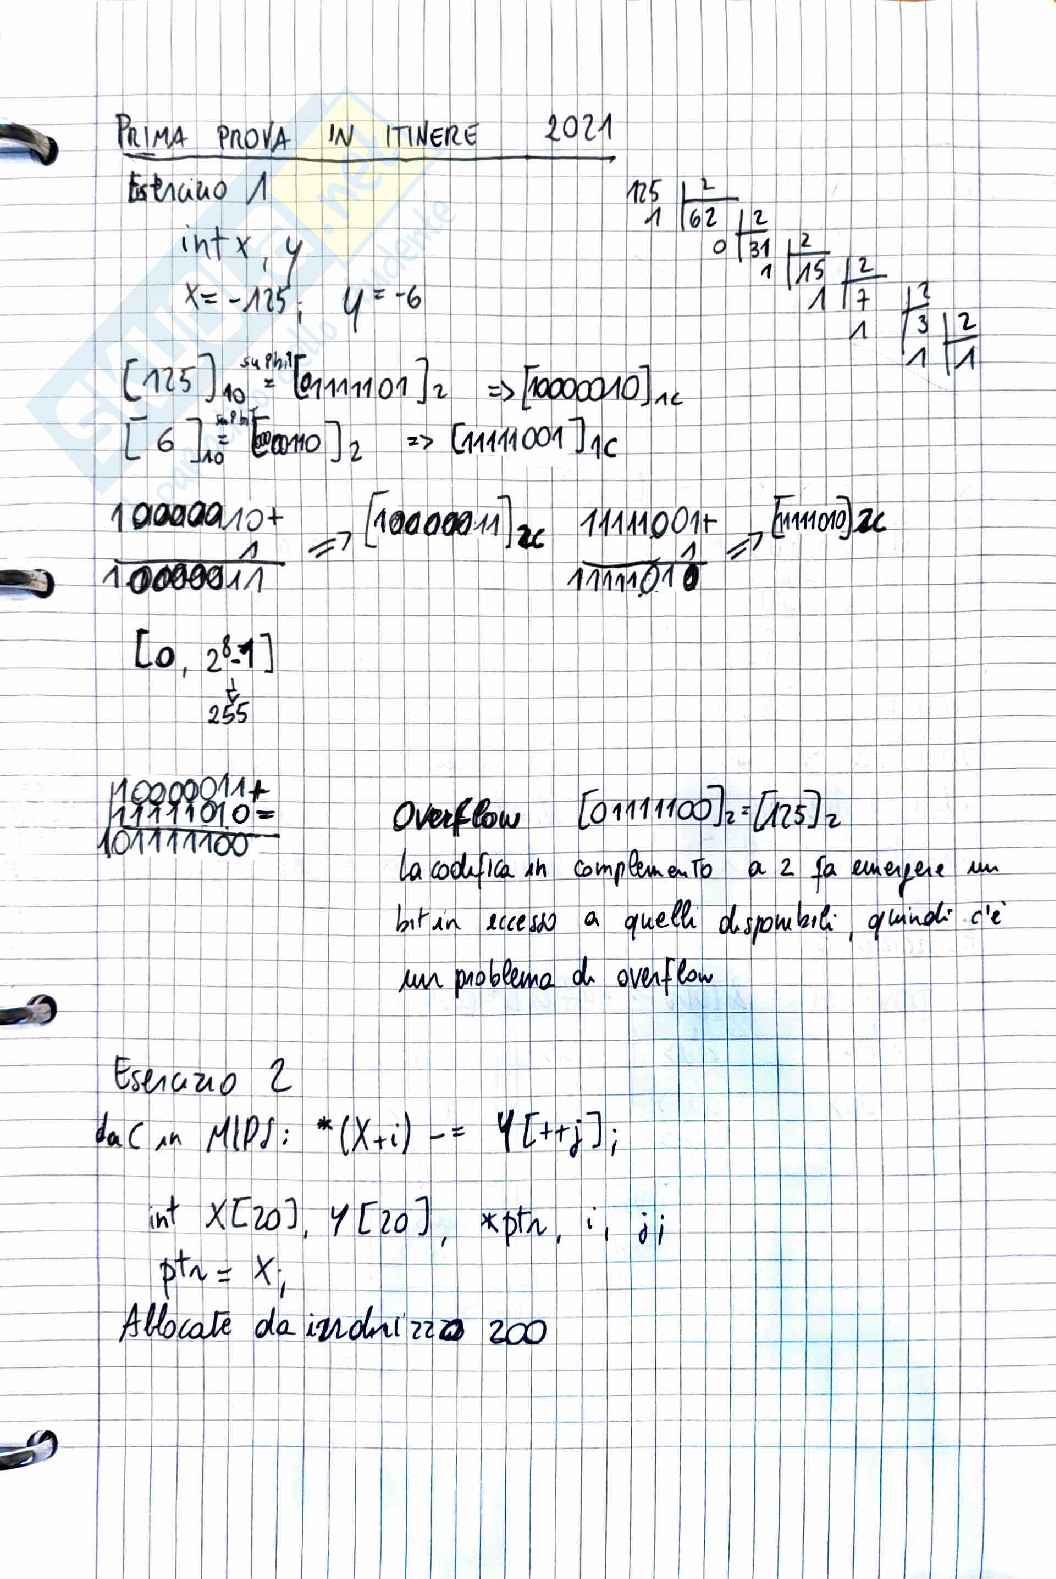 PRIMA PROVA IN ITINERE 2021
Esercizio 1
int x, y
x = -125; y = -6
125 2
1 62 2
0 31 2
1 15 2
1 7 2
1 3 2
1 1
[125]10 su 8 bit = [01111101]2 => [10000010]1C
[6]10 su 8 bit = [00000110]2 => [11111001]1C
10000010+ => [10000011]2C 11111001+ => [11111010]2C
1 1
10000011 11111010
[0, 2^8-1]
255
10000011+
11111010=
101111100
Overflow [01111100]2=[125]2
La codifica in complemento a 2 fa emergere un
bit in eccesso a quelli disponibili, quindi c'è
un problema di overflow
Esercizio 2
da C in MIPS: *(X+i) -= Y[++j];
int X[20], Y[20], *ptr, i, j;
ptr = X;
Allocate da indirizzo 200